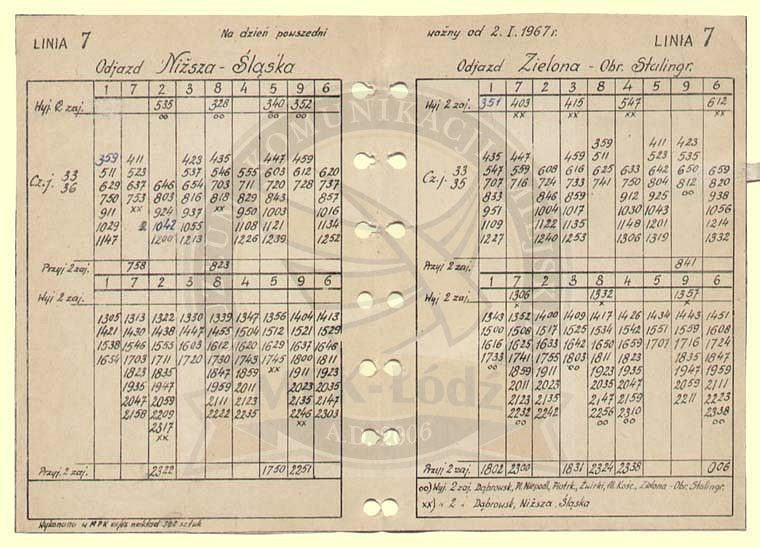 LINIA 7
Na dzień powszedni
ważny od 2. I. 1967 r.
LINIA 7
Odjazd Niższa - Śląska
Odjazd Zielona - Obr. Stalingr.
1 7 2 3 8 4 5 9 6
Wyj. 2 zaj. 535 328 340 352
oo oo oo oo
359 411 423 435 447 459
Cz.j. 33 511 523 537 546 555 603 612 620
36 629 637 646 654 703 711 720 728 737
750 753 803 816 818 829 843 857
911 xx 924 937 xx 950 1003 1016
1029 1042 1055 1108 1121 1134
1147 1200 1213 1226 1239 1252
Przyj 2 zaj. 758 823
1 7 2 3 8 4 5 9 6
Wyj 2 zaj.
1305 1313 1322 1330 1339 1347 1356 1404 1413
1421 1430 1438 1447 1455 1504 1512 1521 1529
1538 1546 1555 1603 1612 1620 1629 1637 1646
1654 1703 1711 1720 1730 1743 1745 1800 1811
1823 1835 1847 1859 xx 1911 1923
1935 1947 1959 2011 2023 2035
2047 2059 2111 2123 2135 2147
2158 2209 2222 2235 2246 2303
2317 xx
xx
Przyj 2 zaj. 2322 1750 2251
Wykonano w MPK
1 7 2 3 8 4 5 9 6
Wyj 2 zaj. 351 403 415 547 612
xx xx xx xx
359 411 423
435 447 459 511 523 535
Cz.j. 33 547 559 608 616 625 633 642 650 659
35 707 716 724 733 741 750 804 812 820
833 846 859 912 925 oo 938
951 1004 1017 1030 1043 1056
1109 1122 1135 1148 1201 1214
1227 1240 1253 1306 1319 1332
Przyj 2 zaj. 841
1 7 2 3 8 4 5 9 6
Wyj 2 zaj. 1306 1332 1357
x x x
1343 1352 1400 1409 1417 1426 1434 1443 1451
1500 1508 1517 1525 1534 1542 1551 1559 1608
1616 1625 1633 1642 1650 1659 1707 1716 1724
1733 1741 1755 1803 1811 1823 1835 1847
oo 1859 1911 oo 1923 1935 1947 1959
2011 2023 2035 2047 2059 2111
2123 2135 2147 2159 2211 2223
2232 2242 2256 2310 2338
oo oo oo oo
Przyj 2 zaj. 1802 2300 1831 2324 2338 006
oo) Wyj. 2 zaj. Dąbrowsk, Pl. Niepodl, Piotrk., Żwirki, Al. Kośc., Zielona - Obr. Stalingr.
xx) " 2 " Dąbrowsk, Niższa, Śląska
KOMUNIKACJI
MPK-Łódź
A.D. 2006